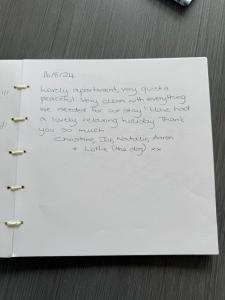 16/8/24
Lovely apartment, very quiet &
peaceful. Very clean with everything
we needed for our stay! Have had
a lovely relaxing holiday Thank
you so much
Christine, Natalie, Aaron
+ Lottie (the dog) xx